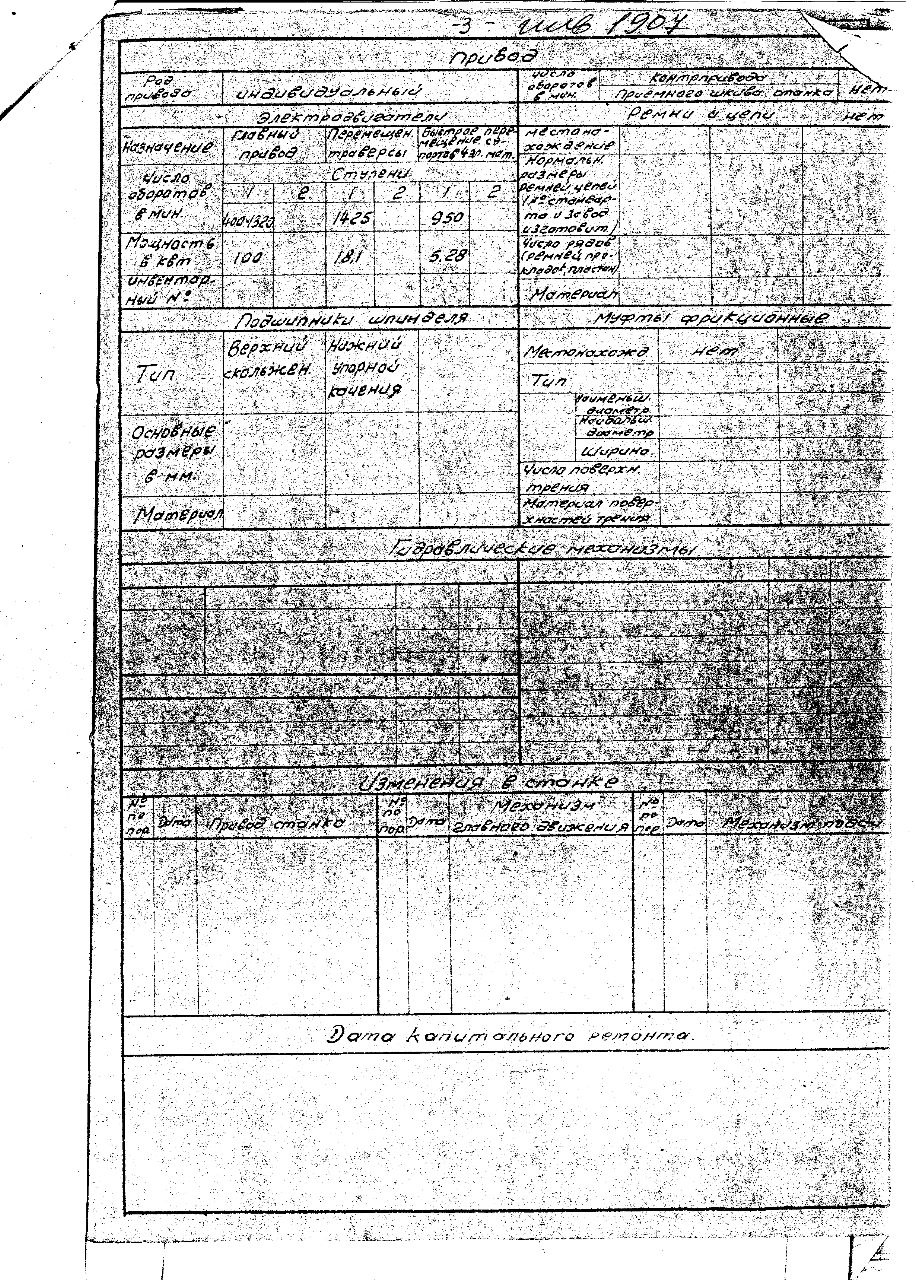 -3- инв 1907
Привод
Род привода
индивидуальный
Число оборотов в мин.
Контрпривода
Приемного шкива станка
нет
Электродвигатели
Ремни и цепи
нет
Назначение
Главный привод
Перемещен. траверсы
Быстрое перемещение суппортов 4 эл. мот.
Местонахождение
Число оборотов в мин.
Ступени
1 2 1 2 1 2
1425
950
Нормальн. размеры ремней, цепей (№ стандарта и завод изготовит.)
Мощность в квт
100
5.28
Число рядов
Инвентарный №
Материал
Подшипники шпинделя
Муфты фрикционные
Тип
Верхний скольжен.
Нижний упорной качения
Местонахожд
нет
Тип
Наименьш. диаметр
Наибольш. диаметр
Ширина
Основные размеры в мм.
Число поверхн. трения
Материал
Материал поверхностей трения
Гидравлические механизмы
Изменения в станке
№ по пор.
Дата
Привод станка
№ по пор.
Дата
Механизм главного движения
№ по пор.
Дата
Механизм подачи
Дата капитального ремонта.